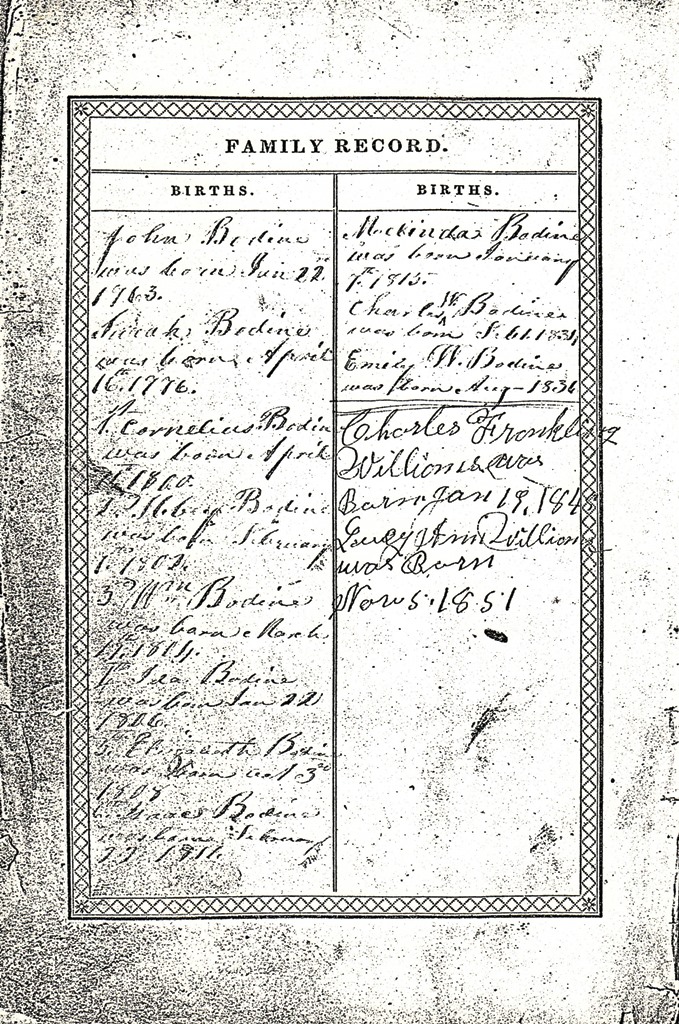 FAMILY RECORD.
BIRTHS.
John Bodine
was born Jun 22
1763.
Sarah Bodine
was born April
16th 1776.
1st Cornelius Bodin
was born April
1800
2 Bodine
was born February
1st 1802.
3 Wm Bodine
was born March
1804.
Ida Bodine
was born Jan 22
1806
5 Elizabeth Bodin
was born oct 3rd
1808
Isaac Bodine
was born February
1811.
BIRTHS.
Bodine
was born January
7th 1815.
Charles W Bodine
was born
Emily W. Bodine
was born Aug
Charles Franklin
Williams was
Born Jan 19, 184
Lucy Ann William
was Born
Nov 5. 1851